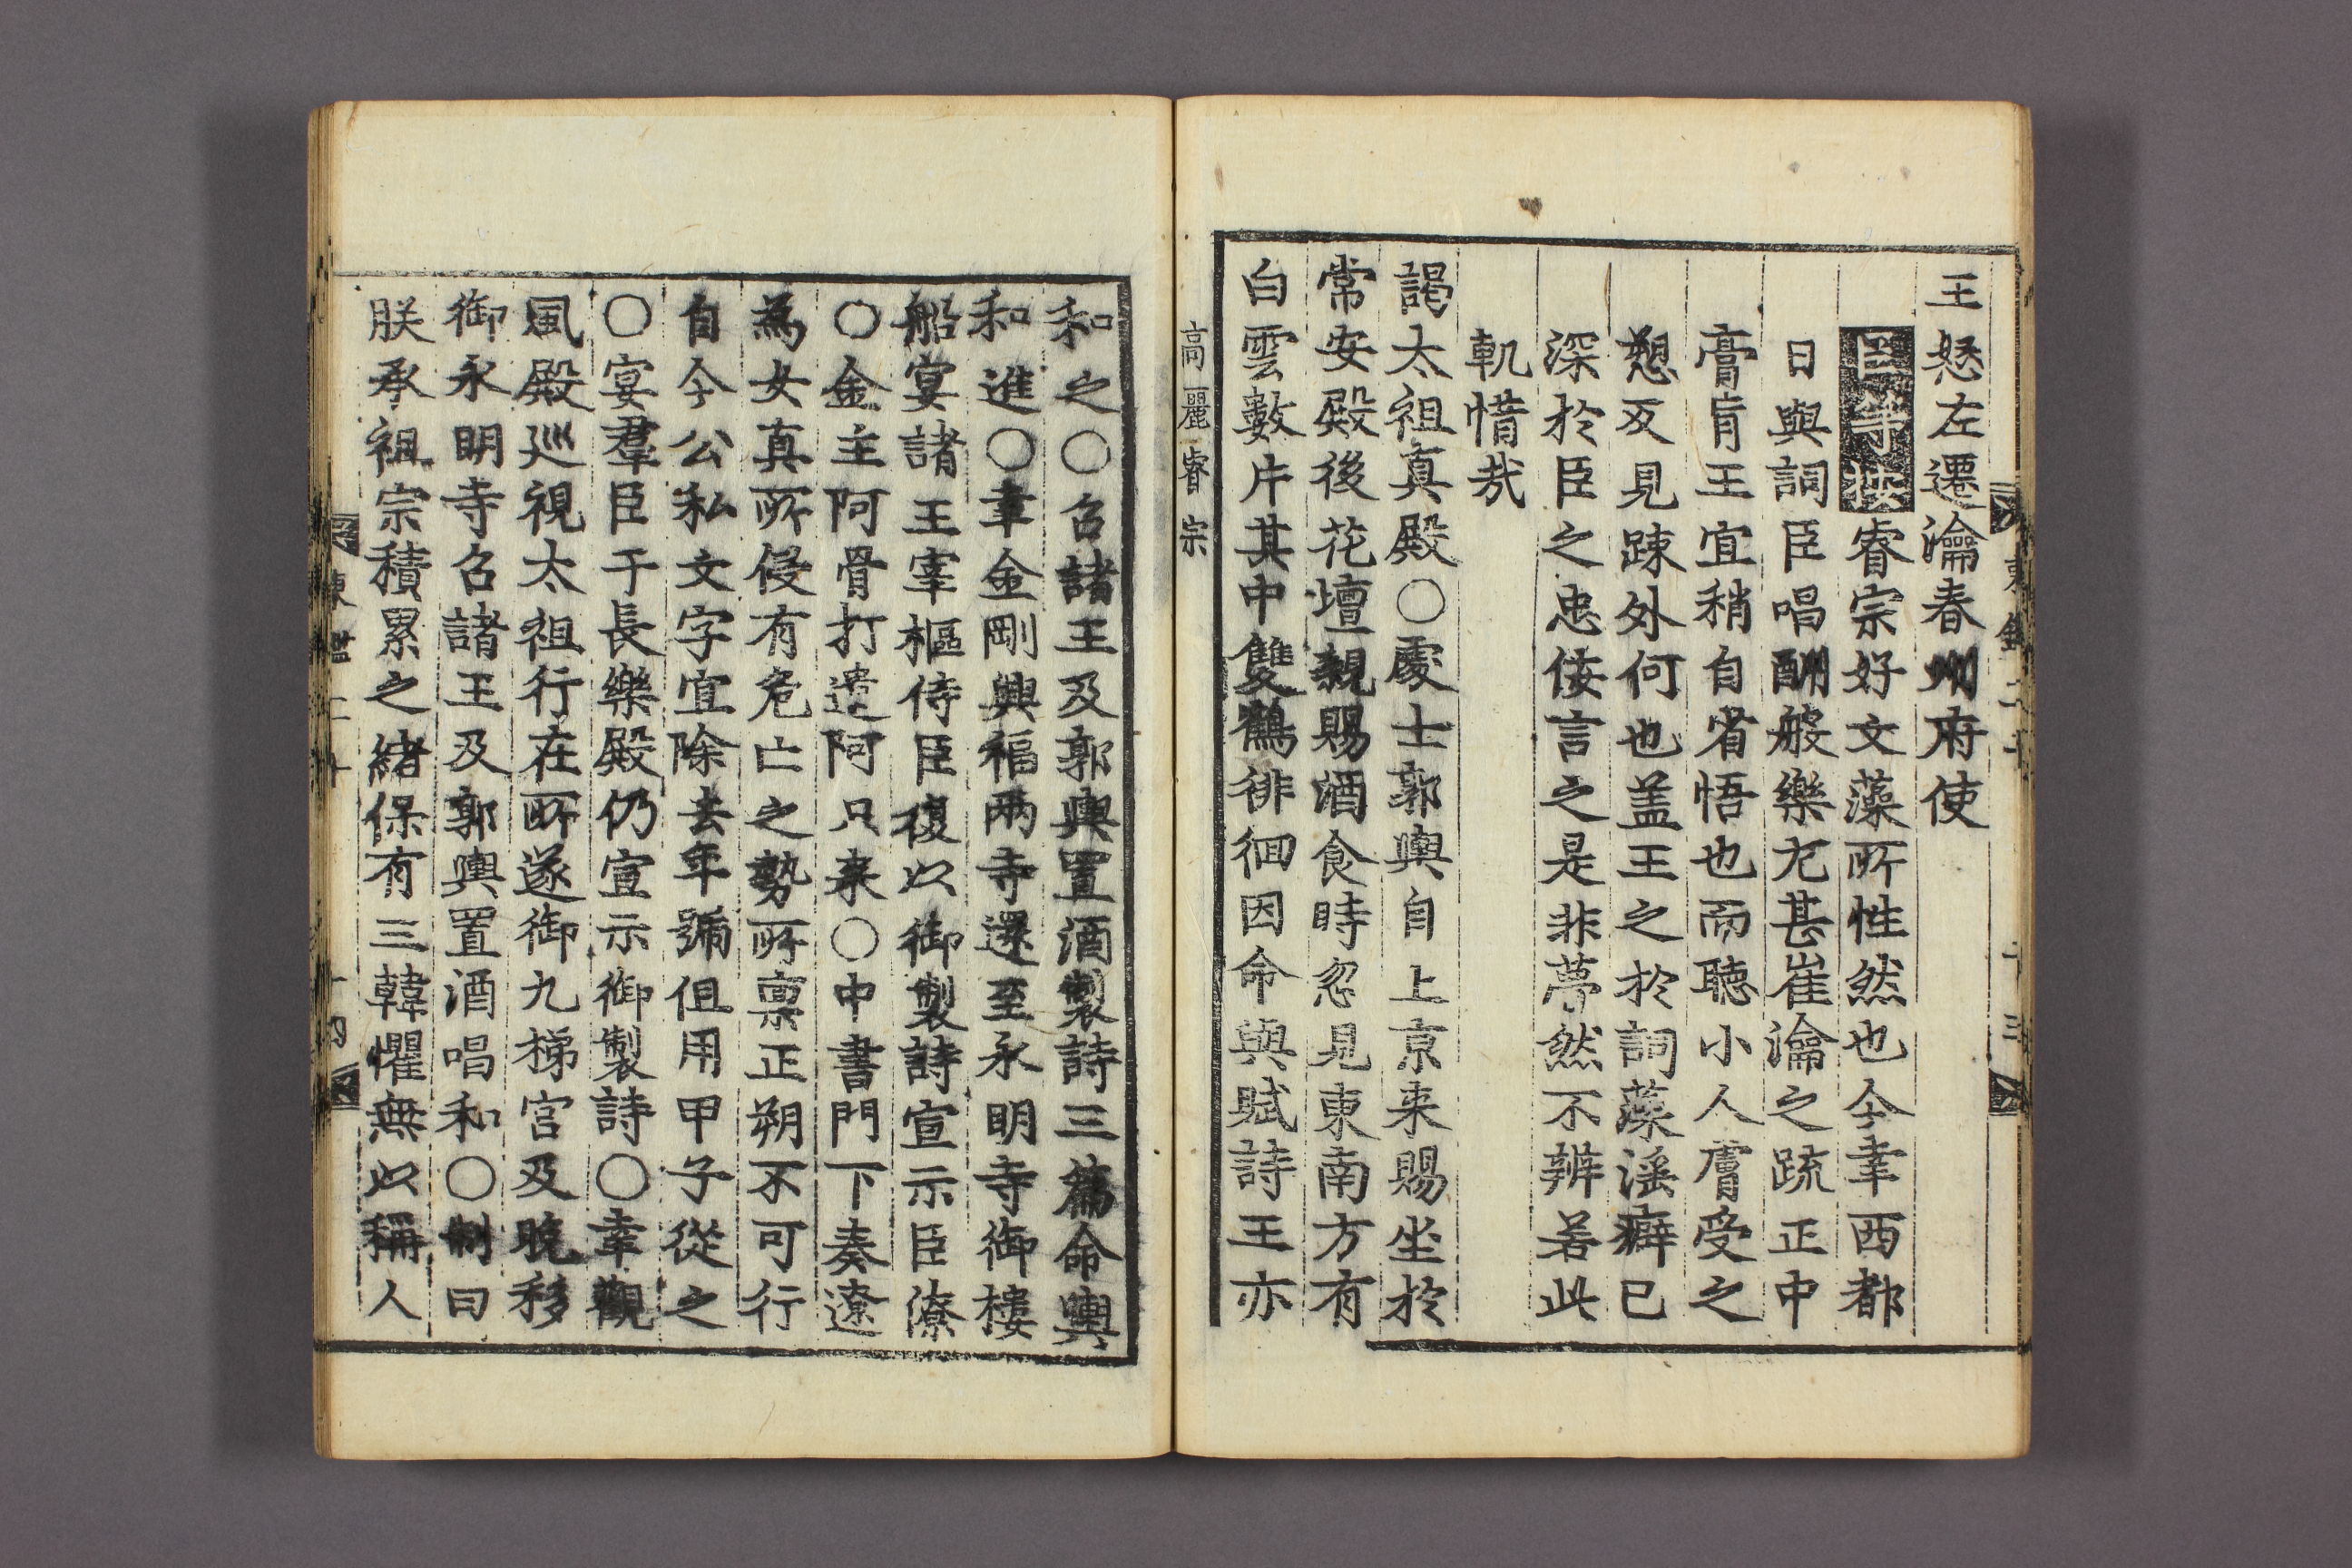 王怒左遷瀹春州府使
臣等按睿宗好文藻所性然也今幸西都
日與詞臣唱酬般樂尤甚崔瀹之疏正中
膏肓王宜稍自省悟也而聽小人膚受之
愬反見踈外何也盖王之於詞藻滛癖已
深於臣之忠佞言之是非夢然不辨若此
軏惜㢤
謁太祖真殿○處士郭輿自上京来賜坐於
常安殿後花壇親賜酒食時忽見東南方有
白雲數片其中雙鶴徘徊因命輿賦詩王亦
高麗睿宗
和之○召諸王及郭輿置酒製詩三篇命輿
和進○幸金剛興福兩寺還至永明寺御樓
船宴諸王宰樞侍臣復以御製詩宣示臣僚
○金主阿骨打遣阿只来○中書門下奏遼
為女真所侵有危亡之勢所禀正朔不可行
自今公私文字宜除去年號但用甲子從之
○宴羣臣于長樂殿仍宣示御製詩○幸觀
風殿巡視太祖行在所遂御九梯宫及晚移
御永明寺召諸王及郭輿置酒唱和○制曰
朕承祖宗積累之緒保有三韓懼無以稱人